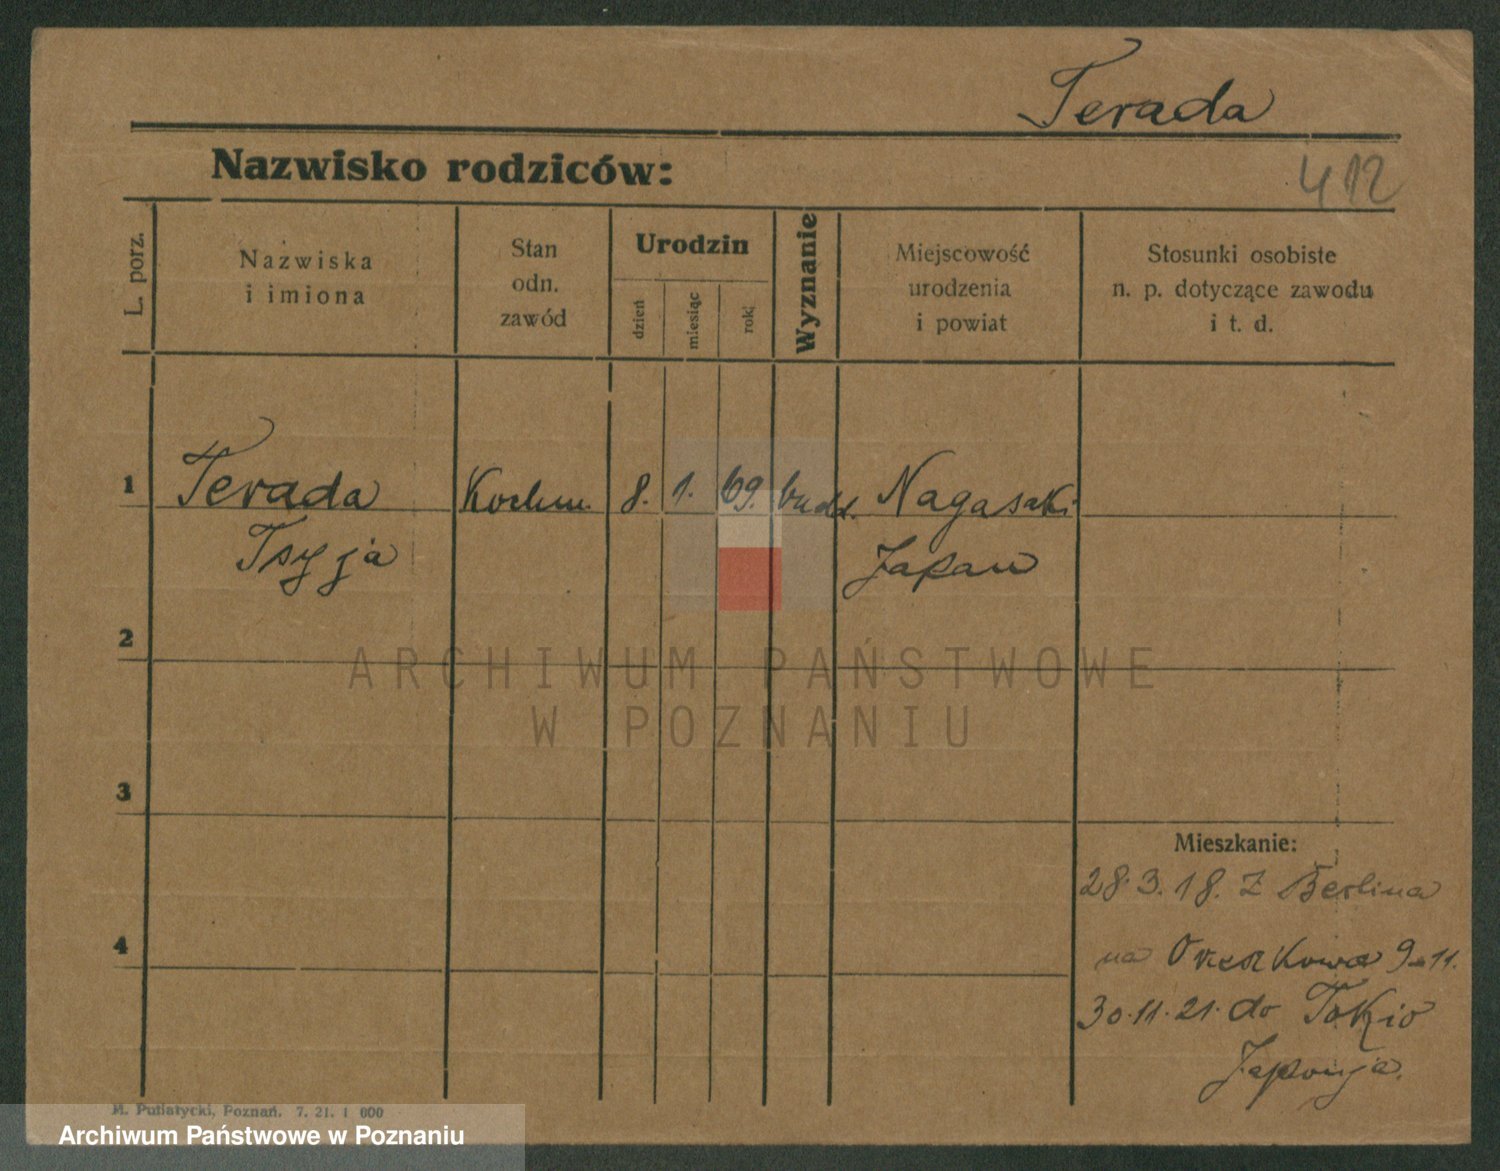 Terada
Nazwisko rodziców:
412
L. porz.
Nazwiska
i imiona
Stan
odn.
zawód
Urodzin
dzień
miesiąc
rok
Wyznanie
Miejscowość
urodzenia
i powiat
Stosunki osobiste
n. p. dotyczące zawodu
i t. d.
1
Terada
8. 1. 69. budd.
Nagasaki
Tsyja
Japan
2
ARCHIWUM PAŃSTWOWE
W POZNANIU
3
Mieszkanie:
28.3.18. z Berlina
4
na Orzeszkowa 9-11.
30.11.21. do Tokio
Japonja.
M. Putiatycki, Poznań. 7. 21. 1 000
Archiwum Państwowe w Poznaniu